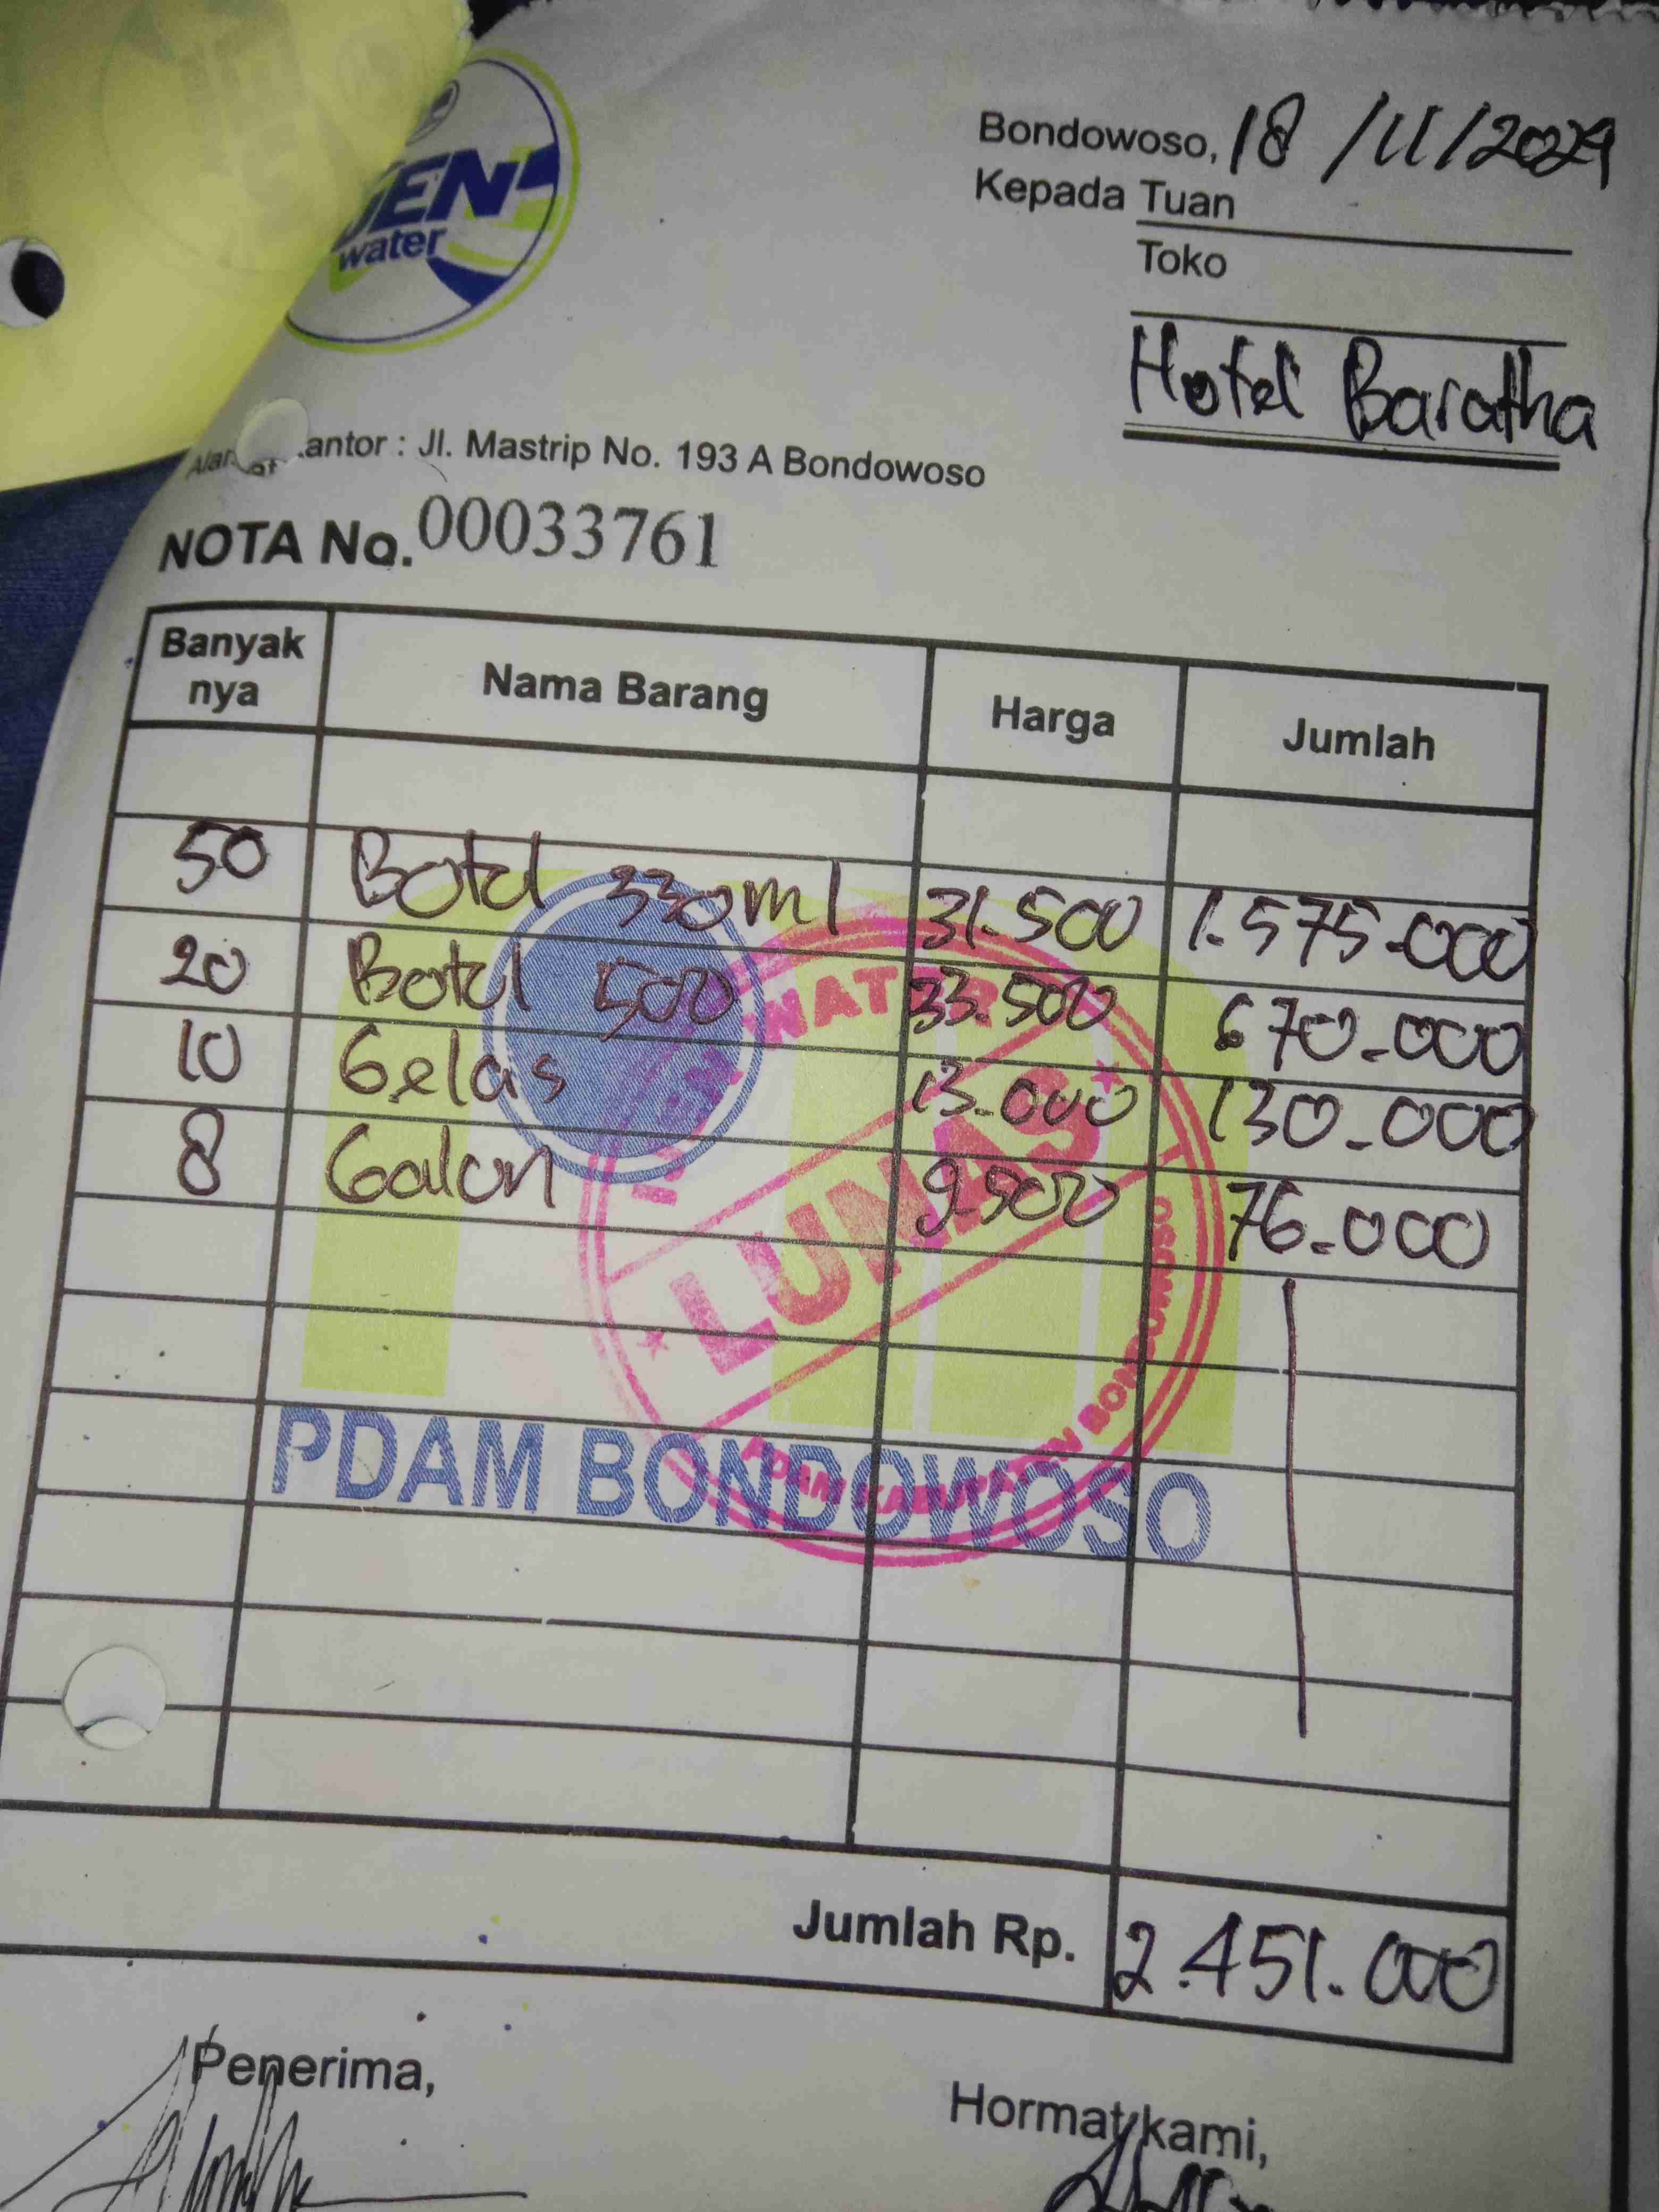 water
Bondowoso, 18/11/2024
Kepada Tuan
Toko
Hotel Baratha
Kantor : Jl. Mastrip No. 193 A Bondowoso
NOTA No. 00033761
Banyak nya Nama Barang Harga Jumlah
50 Botol 330ml 31.500 1.575.000
20 Botol 500 33.500 670.000
10 Gelas 13.000 130.000
8 Galon 9500 76.000
LUNAS
PDAM KABUPATEN BONDOWOSO
PDAM BONDOWOSO
Jumlah Rp. 2.451.000
Penerima,
Hormat kami,